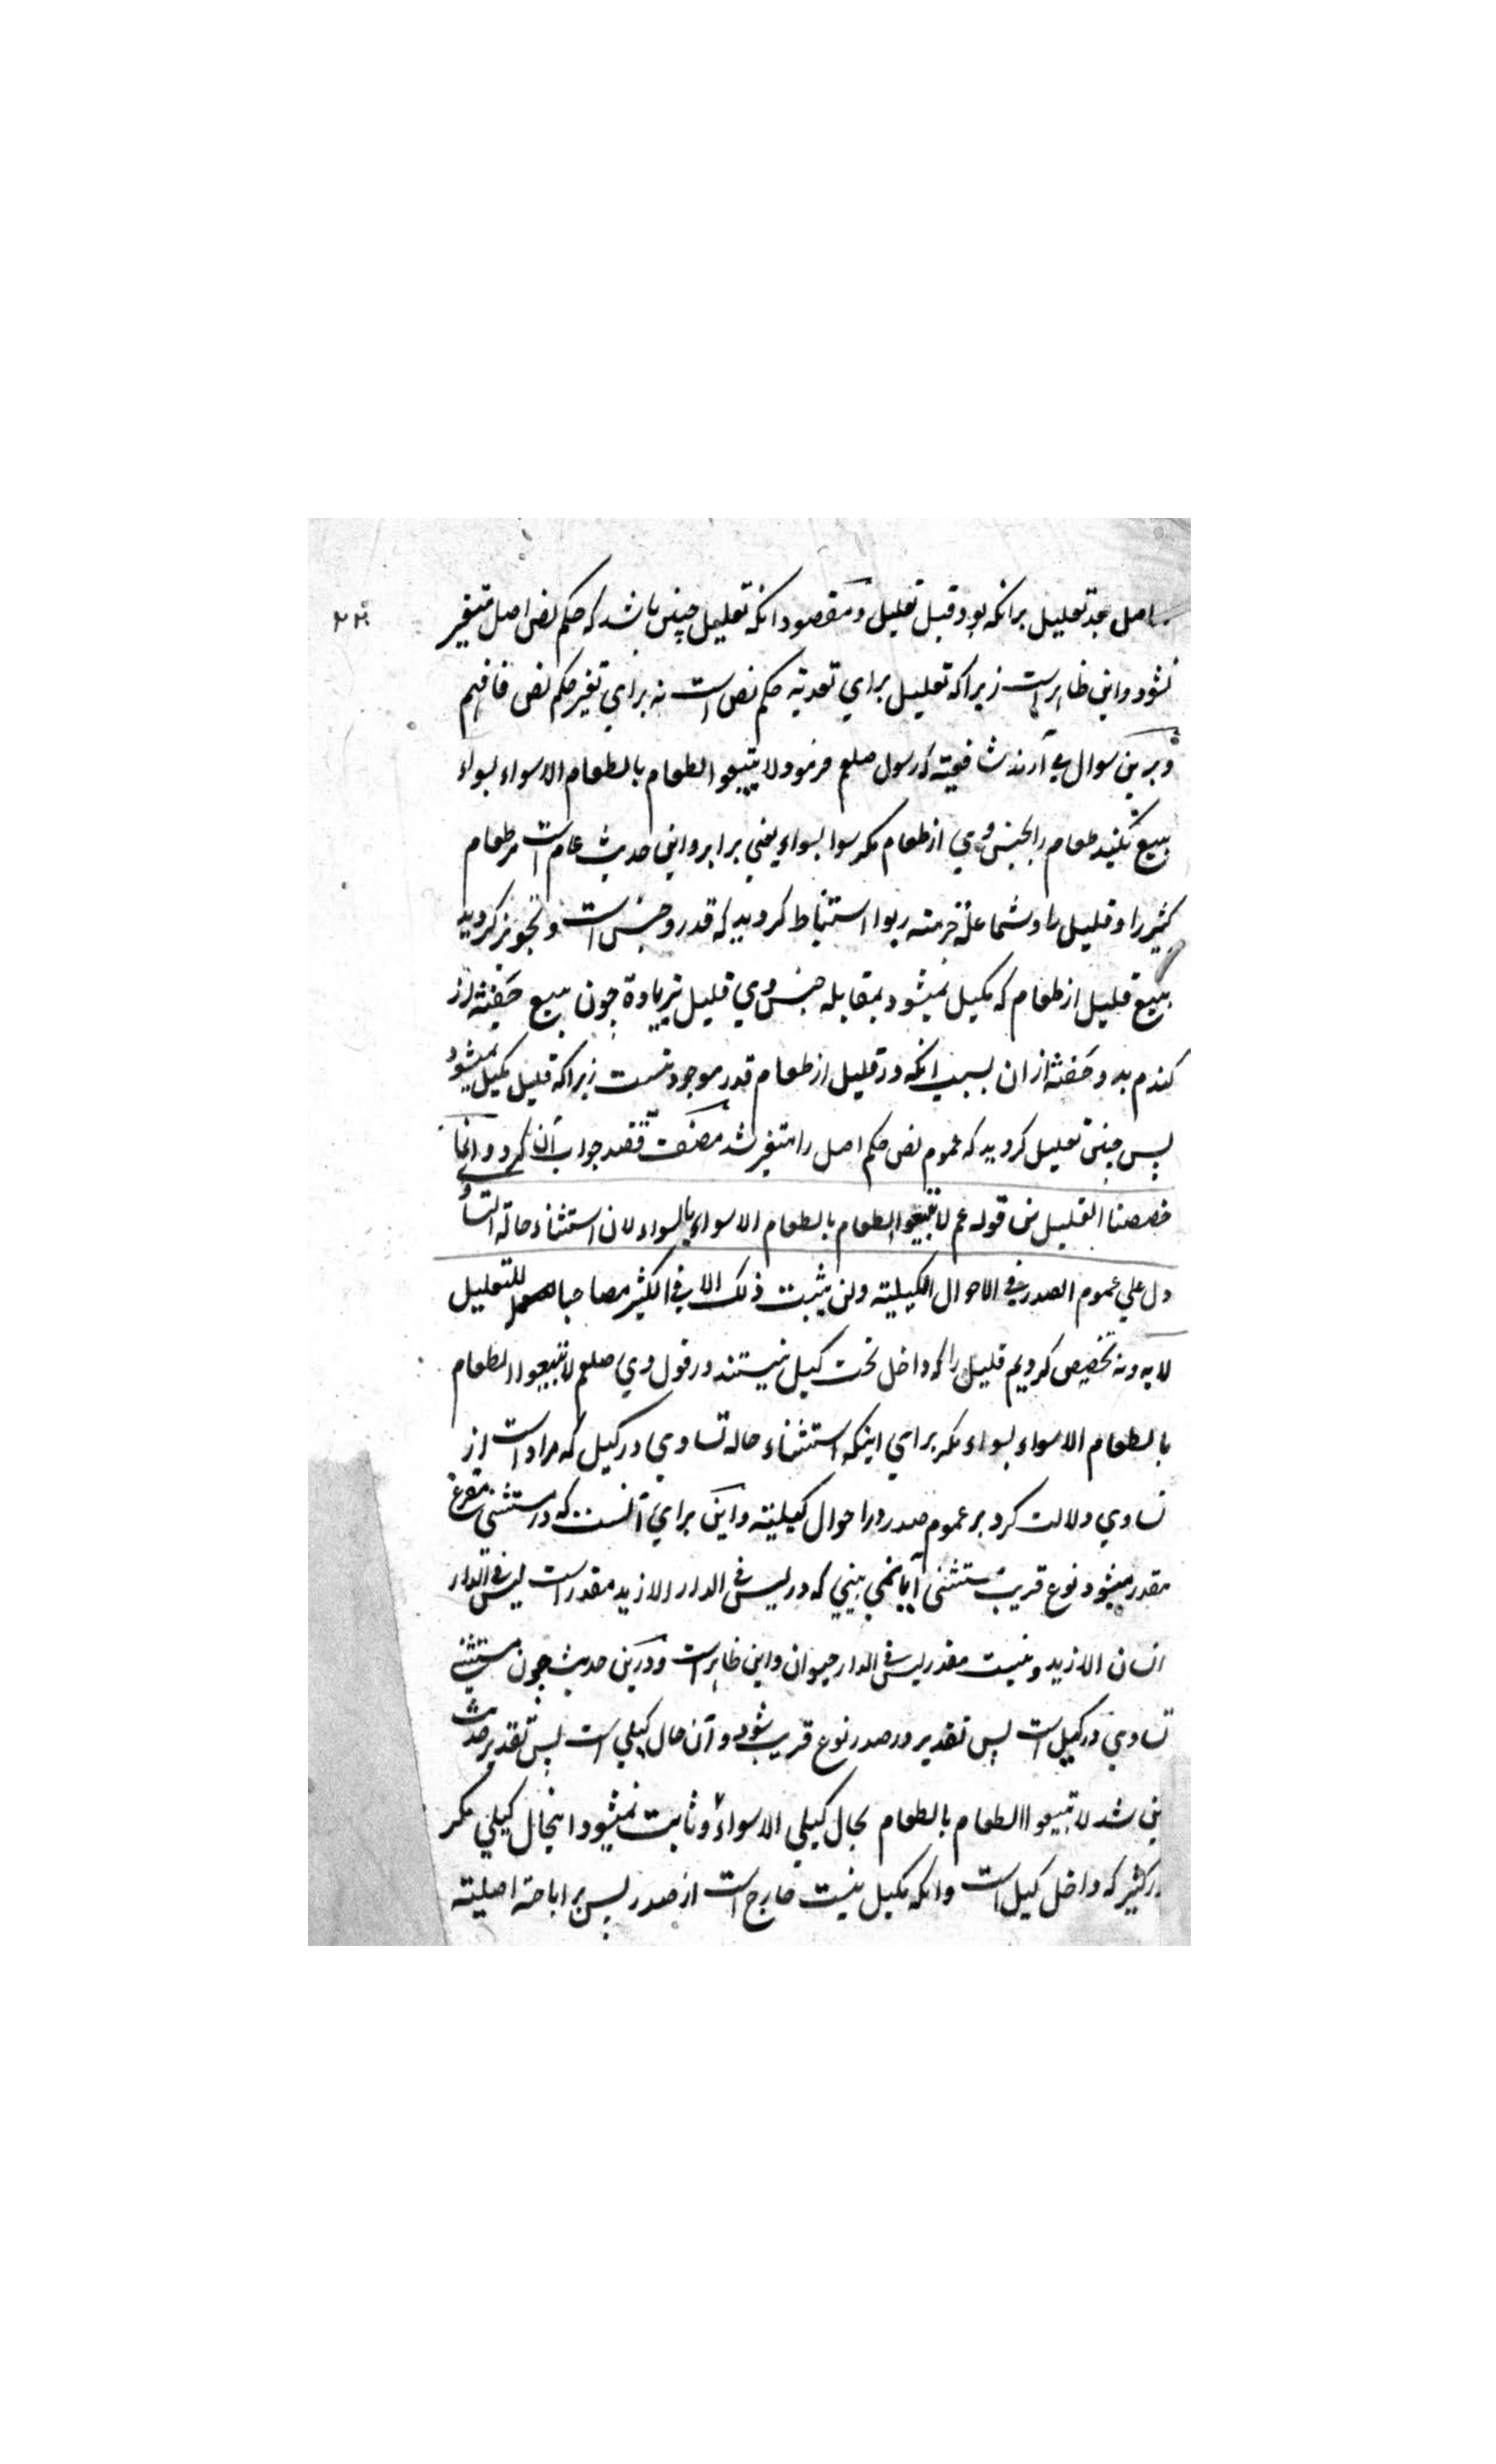 اصل بعد تعلیل برانکه بود قبل تعلیل و مقصود انکه تعلیل چنین باشد که حکم نص اصل متغیر
نشود واین ظاهر است زیراکه تعلیل برای تعدیه حکم نص است نه برای تغیر حکم نص فافهم
وبرین سوال می آرند شافعیه که رسول صلعم فرمود لا تبیعوا الطعام بالطعام الا سواء بسواء
بیع نکنید طعام را بجنس وی از طعام مکر سوا بسواء یعنی برابر واین حدیث عام است مر طعام
کثیر را و قلیل را وشما علة حرمته ربوا استنباط کردید که قدر وجنس است و تجویز کردید
بیع قلیل از طعام که بکیل نمیشود بمقابله جنس وی قلیل بزیادة چون بیع حفنه از
کندم بدو حفنه ازان بسبب انکه در قلیل از طعام قدر موجود نیست زیراکه قلیل بکیل نمیشود
پس چنین تعلیل کردید که عموم نص حکم اصل را متغیر شد مصنف قصد جواب آن کرد وانما
خصصنا القلیل من قوله عم لا تبیعوا الطعام بالطعام الا سواء بالسواء لان استثناء حالة التساو
دل علی عموم الصدر فی الاحوال الکیلیة ولن یثبت ذلک الا فی الکثیر مصاحبا للتعلیل
لا به ونه تخصیص کردیم قلیل را که داخل تحت کیل نیستند در قول وی صلعم لا تبیعوا الطعام
بالطعام الا سواء بسواء مکر برای اینکه استثناء حاله تساوی در کیل که مراد است از
تساوی دلالت کرد بر عموم صدر در احوال کیلیه واین برای آنست که در مستثنی مفرغ
مقدر میشود نوع قریب مستثنی آیا نمی بینی که در لیس فی الدار الا زید مقدر است لیس فی الدار
انسان الا زید ونیست مقدر لیس فی الدار حیوان واین ظاهر است ودرین حدیث چون مستثنی
تساوی در کیل است پس تقدیر در صدر نوع قریب شود وآن حال کیلی است پس تقدیر حدیث
ین شد لا تبیعوا الطعام بالطعام بحال کیلی الا سواء وثابت نمیشود اینحال کیلی مکر
در کثیر که داخل کیل است وانکه بکیل نیست خارج است از صدر پس بر اباحة اصلیه